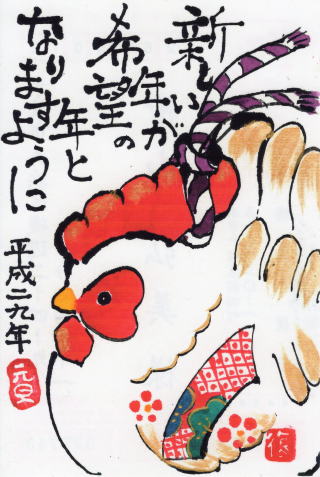 新しい年が
希望の年と
なりますように
平成二九年
元旦
福